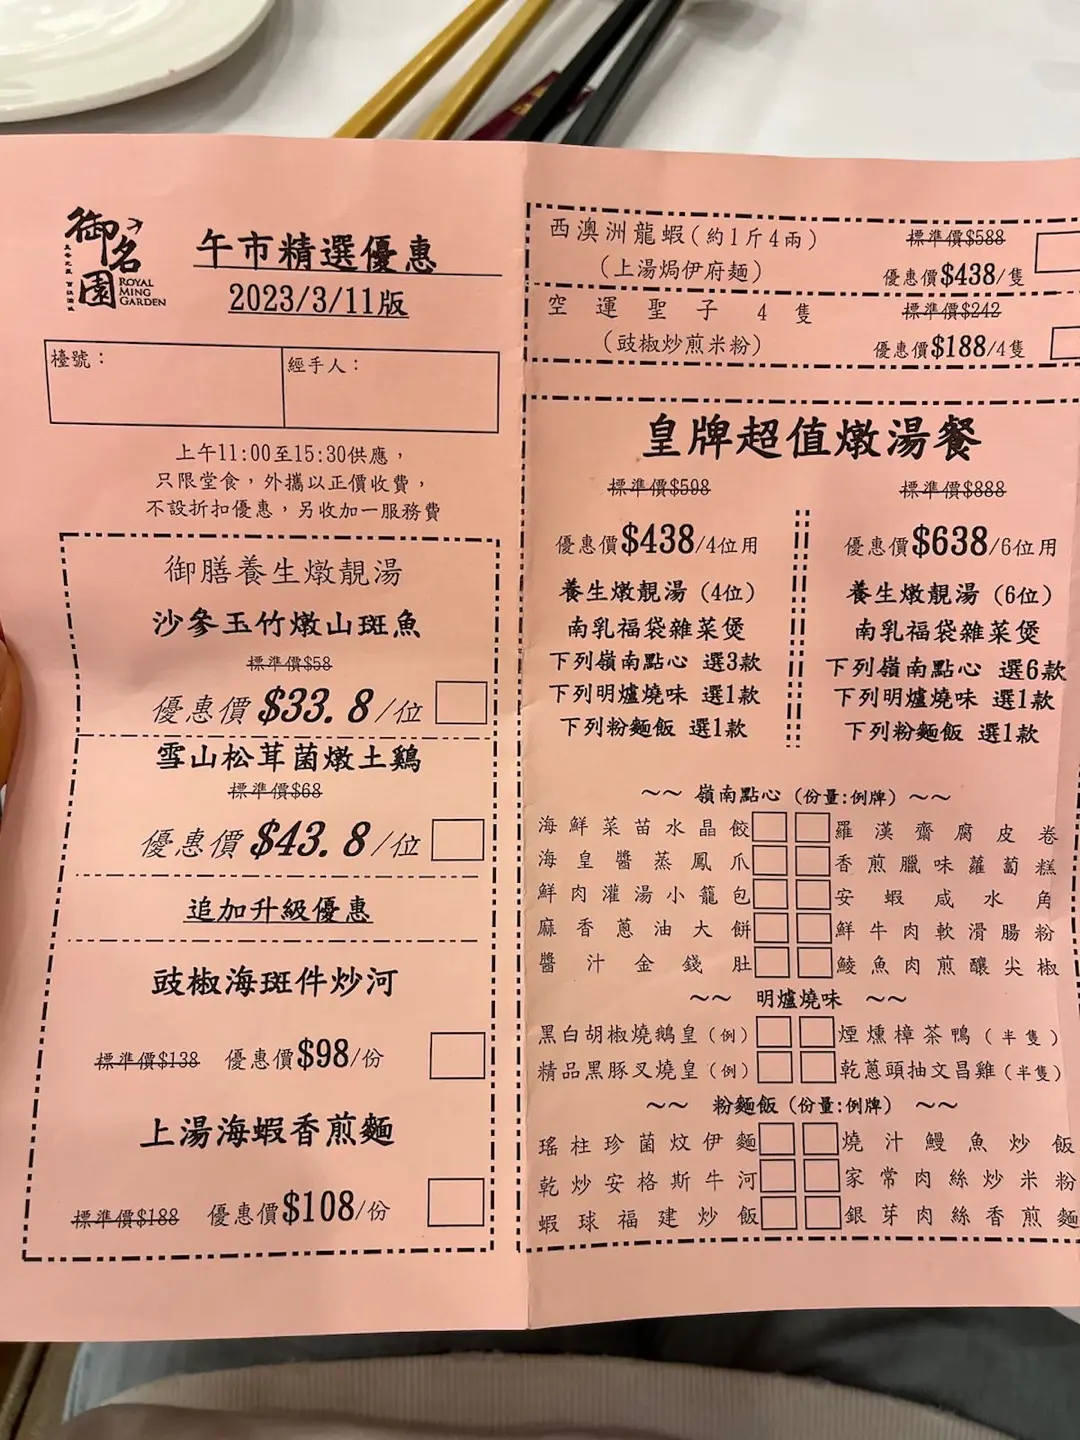 御名園
ROYAL
MING
GARDEN
午市精選優惠
2023/3/11版
檯號：
經手人：
上午11:00至15:30供應，
只限堂食，外攜以正價收費，
不設折扣優惠，另收加一服務費
御膳養生燉靚湯
沙參玉竹燉山斑魚
標準價$58
優惠價 $33.8/位
雪山松茸菌燉土鷄
標準價$68
優惠價 $43.8/位
追加升級優惠
豉椒海斑件炒河
標準價$138 優惠價$98/份
上湯海蝦香煎麵
標準價$188 優惠價$108/份
西澳洲龍蝦(約1斤4兩) 標準價$588
(上湯焗伊府麵) 優惠價$438/隻
空運聖子4隻 標準價$242
(豉椒炒煎米粉) 優惠價$188/4隻
皇牌超值燉湯餐
標準價$598
優惠價$438/4位用
養生燉靚湯 (4位)
南乳福袋雜菜煲
下列嶺南點心 選3款
下列明爐燒味 選1款
下列粉麵飯 選1款
標準價$888
優惠價$638/6位用
養生燉靚湯 (6位)
南乳福袋雜菜煲
下列嶺南點心 選6款
下列明爐燒味 選1款
下列粉麵飯 選1款
～～ 嶺南點心 (份量:例牌) ～～
海鮮菜苗水晶餃 羅漢齋腐皮卷
海皇醬蒸鳳爪 香煎臘味蘿蔔糕
鮮肉灌湯小籠包 安蝦咸水角
麻香蔥油大餅 鮮牛肉軟滑腸粉
醬汁金錢肚 鯪魚肉煎釀尖椒
～～ 明爐燒味 ～～
黑白胡椒燒鵝皇(例) 煙燻樟茶鴨(半隻)
精品黑豚叉燒皇(例) 乾蔥頭抽文昌雞(半隻)
～～ 粉麵飯 (份量:例牌) ～～
瑤柱珍菌炆伊麵 燒汁鰻魚炒飯
乾炒安格斯牛河 家常肉絲炒米粉
蝦球福建炒飯 銀芽肉絲香煎麵